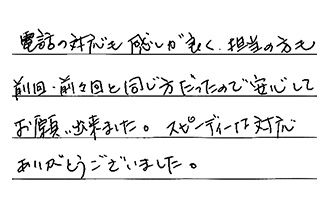 電話の対応も感じが良く、担当の方も
前回・前々回と同じ方だったので安心して
お願い出来ました。スピーディーな対応
ありがとうございました。